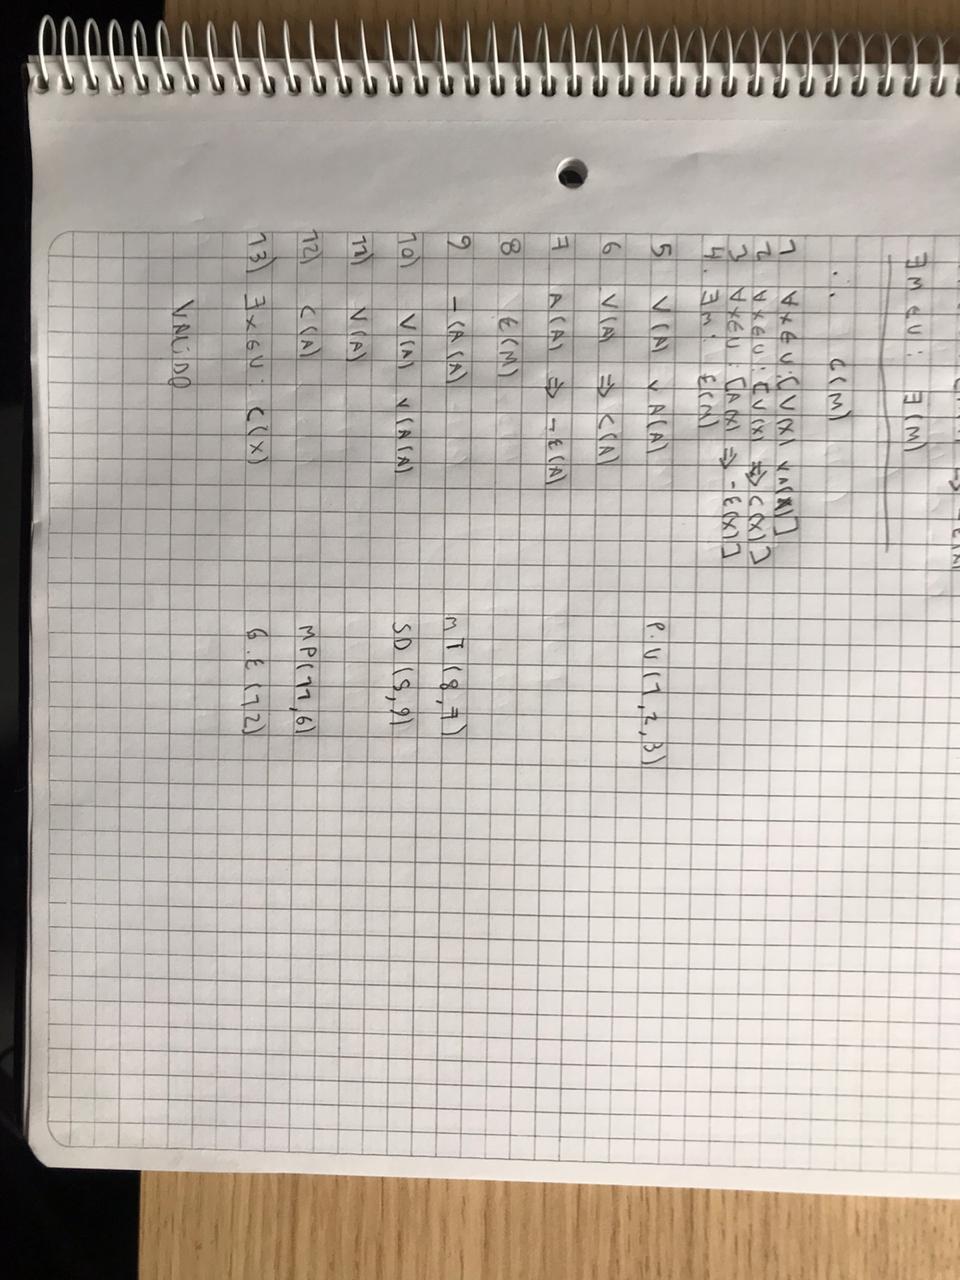 ∃M ∈U: ∃(M)
∴ C(M)
1 ∀x∈U:[V(x) ∨ A(x)]
2 ∀x∈U:[V(x) ⇒ C(x)]
3 ∀x∈U:[A(x) ⇒ -E(x)]
4. ∃m: E(M)
5 V(A) ∨ A(A) P.U(1,2,3)
6 V(A) ⇒ C(A)
7 A(A) ⇒ -E(A)
8 E(M)
9 -(A(A) MT(8,7)
10) V(A) ∨(A(A) SD(5,9)
11) V(A)
12) C(A) MP(11,6)
13) ∃x∈U: C(x) G.E(12)
VALIDO